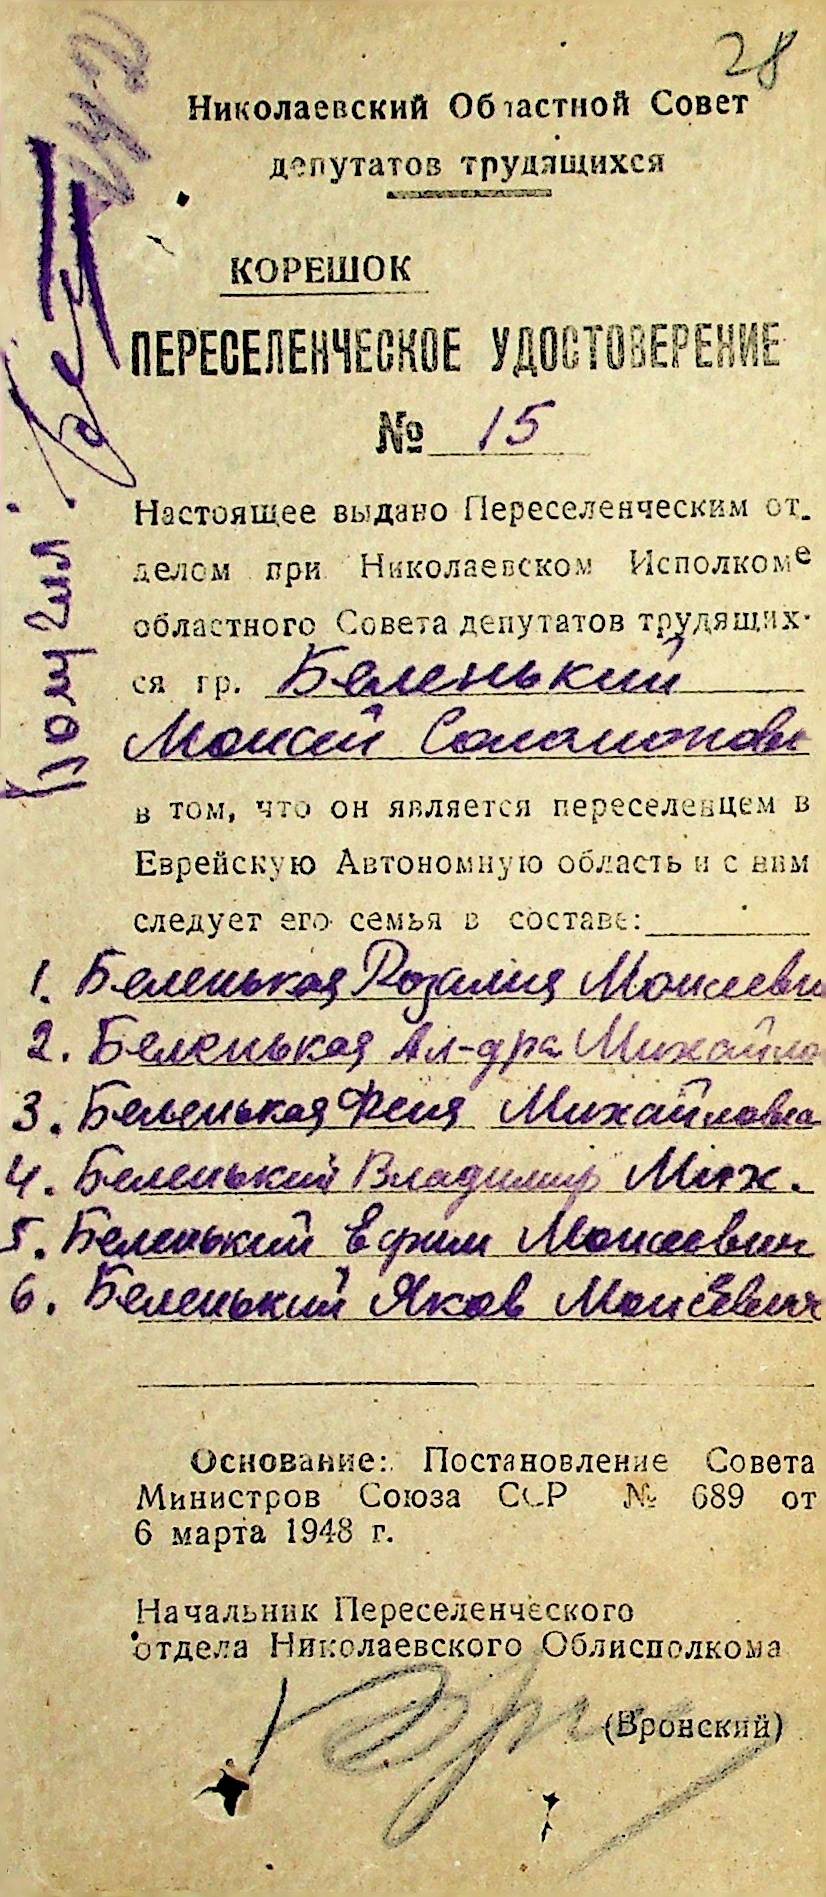 28
Николаевский Областной Совет
депутатов трудящихся
КОРЕШОК
ПЕРЕСЕЛЕНЧЕСКОЕ УДОСТОВЕРЕНИЕ
№ 15
Настоящее выдано Переселенческим от-
делом при Николаевском Исполкоме
областного Совета депутатов трудящих-
ся гр. Беленький
Моисей Соломонови
в том, что он является переселенцем в
Еврейскую Автономную область и с ним
следует его семья в составе:
1. Беленькая Розалия Моисеевн
2. Беленькая Ал-дра Михайло
3. Беленькая Феня Михайловна
4. Беленький Владимир Мих.
5. Беленький Ефим Моисеевич
6. Беленький Яков Моисевич
Основание: Постановление Совета
Министров Союза ССР № 689 от
6 марта 1948 г.
Начальник Переселенческого
отдела Николаевского Облисполкома
(Вронский)
Получил